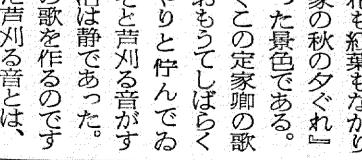 花も紅葉もなかり
家の秋の夕ぐれ』
った景色である。
くこの定家卿の歌
おもうてしばらく
やりと佇んでゐ
そと芦刈る音がす
沼は静であった。
の歌を作るのです
た芦刈る音とは、